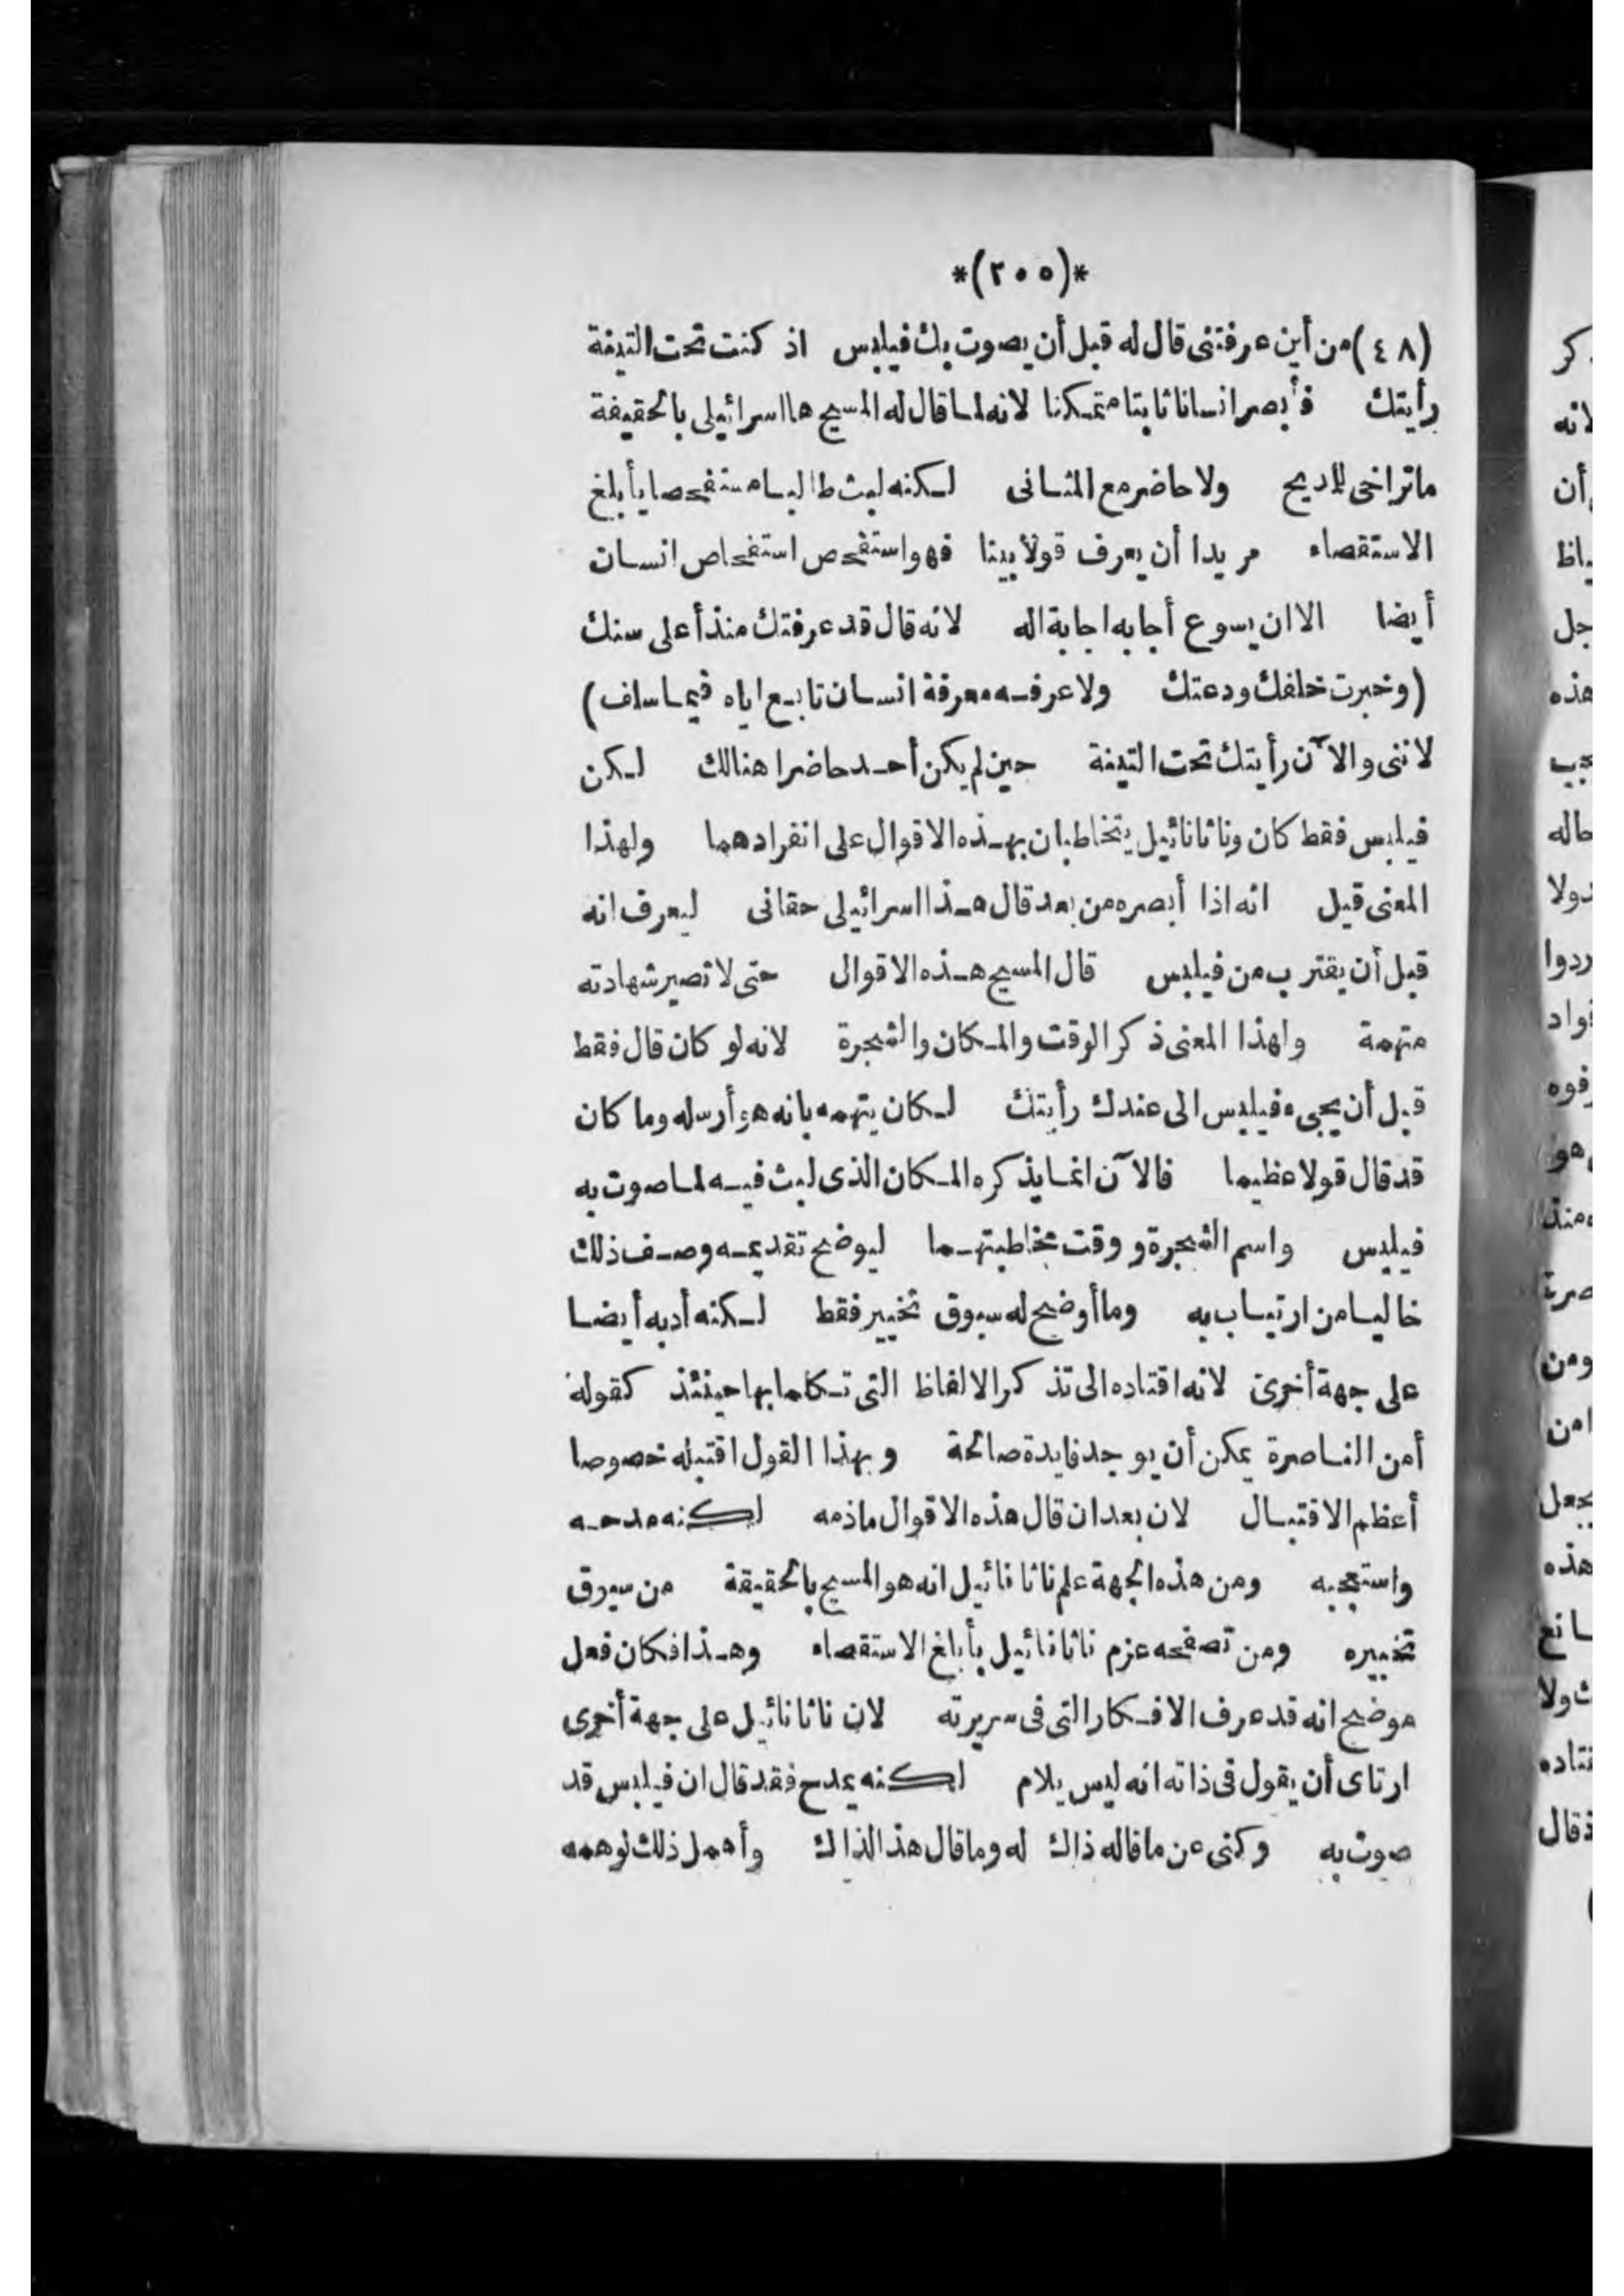 *(٢٠٥)*
(٤٨) من أين عرفتنى قال له قبل أن يصوت بك فيلبس اذ كنت تحت التينة
رأيتك فأبصر انسانا ثابتا متمكنا لانه لما قال له المسيح ها اسرائيلى بالحقيقة
ماتراخى للمديح ولا حاضر مع المثانى لكنه لبث طالبا مستفحصا بأبلغ
الاستقصاء مريدا أن يعرف قولا بينا فهو استفحص استفحاص انسان
أيضا الا ان يسوع أجابه اجابة اله لانه قال قد عرفتك منذ أعلى سنك
(وخبرت خلقك ودعتك ولا عرفه معرفة انسان تابع اياه فيما سلف)
لاننى والآن رأيتك تحت التينة حين لم يكن أحد حاضرا هنالك لكن
فيلبس فقط كان وناثانائيل يتخاطبان بهذه الاقوال على انفرادهما ولهذا
المعنى قيل انه اذا أبصره من بعد قال هذا اسرائيلى حقانى ليعرف انه
قبل أن يقترب من فيلبس قال المسيح هذه الاقوال حتى لا تصير شهادته
متهمة ولهذا المعنى ذكر الوقت والمكان والشجرة لانه لو كان قال فقط
قبل أن يجىء فيلبس الى عندك رأيتك لكان يتهمه بانه هو أرسله وما كان
قد قال قولا عظيما فالآن انما يذكره المكان الذى لبث فيه لما صوت به
فيلبس واسم الشجرة ووقت مخاطبتهما ليوضح تقديمه وصف ذلك
خاليا من ارتياب به وما أوضح له سبوق تخيير فقط لكنه أدبه أيضا
على جهة أخرى لانه اقتاده الى تذكر الالفاظ التى تكلما بها حينئذ كقوله
أمن الناصرة يمكن أن يوجد فايدة صالحة وبهذا القول اقتبله خصوصا
أعظم الاقتبال لان بعد ان قال هذه الاقوال ماذمه لكنه مدحه
واستعجبه ومن هذه الجهة علم ناثانائيل انه هو المسيح بالحقيقة من سبوق
تخييره ومن تصفحه عزم ناثانائيل بأبلغ الاستقصاء وهذا فكان فعل
موضح انه قد عرف الافكار التى فى سريرته لان ناثانائيل على جهة أخرى
ارتاى أن يقول فى ذاته انه ليس يلام لكنه يمدح فقد قال ان فيلبس قد
صوت به وكنى عن ما قاله ذاك له وما قال هذا لذاك وأهمل ذلك لوهمه